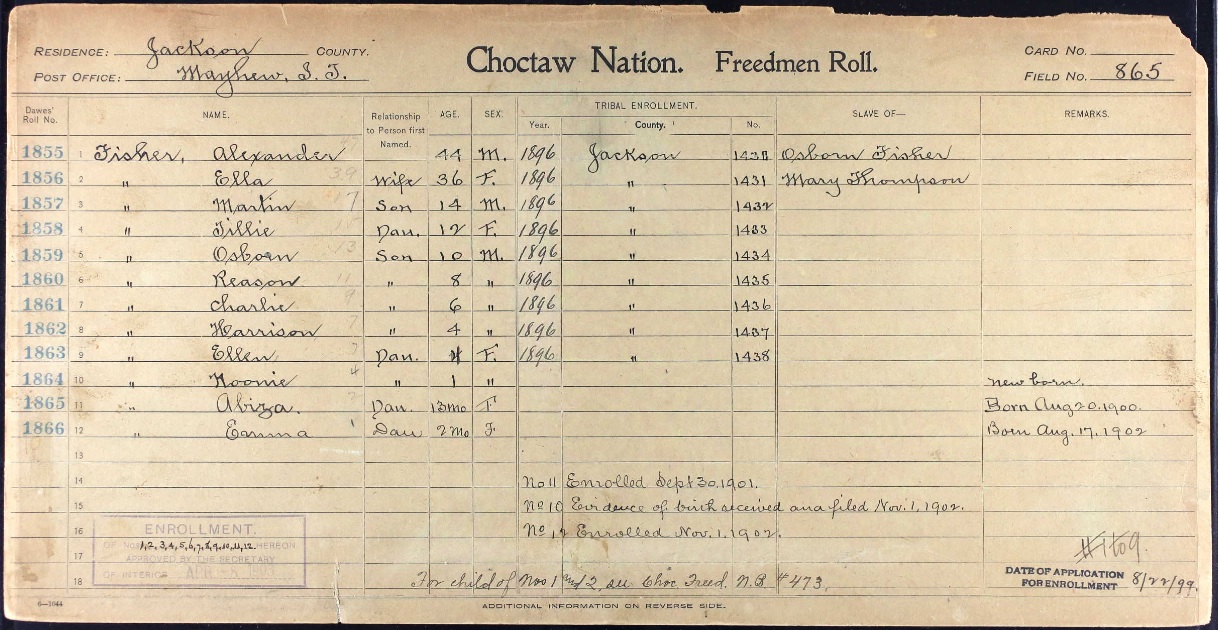 RESIDENCE: Jackson COUNTY. Choctaw Nation. Freedmen Roll. CARD NO.
POST OFFICE: Mayhew, I. T. FIELD NO. 865
Dawes' Roll No. NAME. Relationship to Person first Named. AGE. SEX. TRIBAL ENROLLMENT. SLAVE OF— REMARKS.
Year. County. No.
1855 1 Fisher, Alexander 44 M. 1896 Jackson Osborn Fisher
1856 2 " Ella 39 Wife 36 F. 1896 " 1431 Mary Thompson
1857 3 " Martin Son 14 M. 1896 " 1432
1858 4 " Tillie Dau. 12 F. 1896 " 1433
1859 5 " Osborn 13 Son 10 M. 1896 " 1434
1860 6 " Reason 11 " 8 " 1896 " 1435
1861 7 " Charlie 9 " 6 " 1896 " 1436
1862 8 " Harrison 7 " 4 " 1896 " 1437
1863 9 " Ellen Dau. F. 1896 " 1438
1864 10 " 4 " 1 " new born.
1865 11 " Abiza. Dau. 13mo F Born Aug 20, 1900.
1866 12 " Emma 1 Dau 2 Mo F Born Aug. 17, 1902
13
14 No 11 Enrolled Sept 30, 1901.
15 No 10 Evidence of birth received and filed Nov. 1, 1902.
16 No 12 Enrolled Nov. 1, 1902.
17
18 For child of Nos 1 and 2, see Choc Freed. N.B. #473.
ENROLLMENT.
OF NOS. 1,2,3,4,5,6,7,8,9,10,11,12. HEREON
APPROVED BY THE SECRETARY
OF INTERIOR
#1 to 9.
DATE OF APPLICATION FOR ENROLLMENT 8/22/99.
6—1044
ADDITIONAL INFORMATION ON REVERSE SIDE.